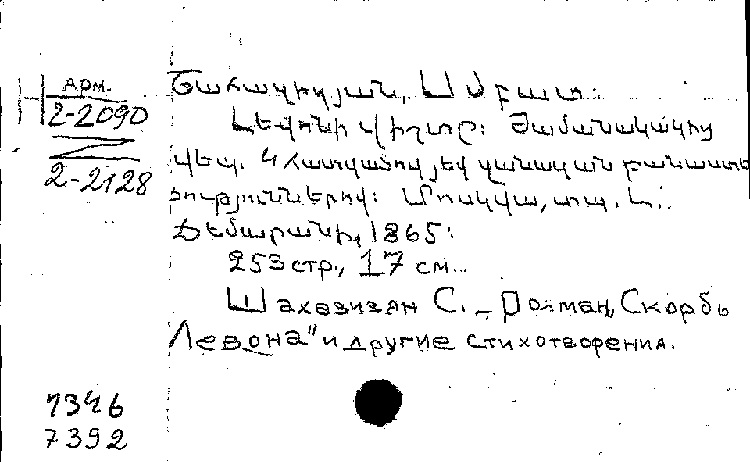 арм.
Н 2-2090
2-2128
Շահազիզյան, Սմբատ:
Լևոնի վիշտը: Ժամանակակից
վեպ. 4 հատվածով և զանազան բանաստե
ղություններով: Մոսկվա, տպ. Լ.
Ճեմարանի, 1865:
253 стр., 17 см.
Шахазизян С. – Роман, Скорбь
Левона" и другие стихотворения.
7346
7392